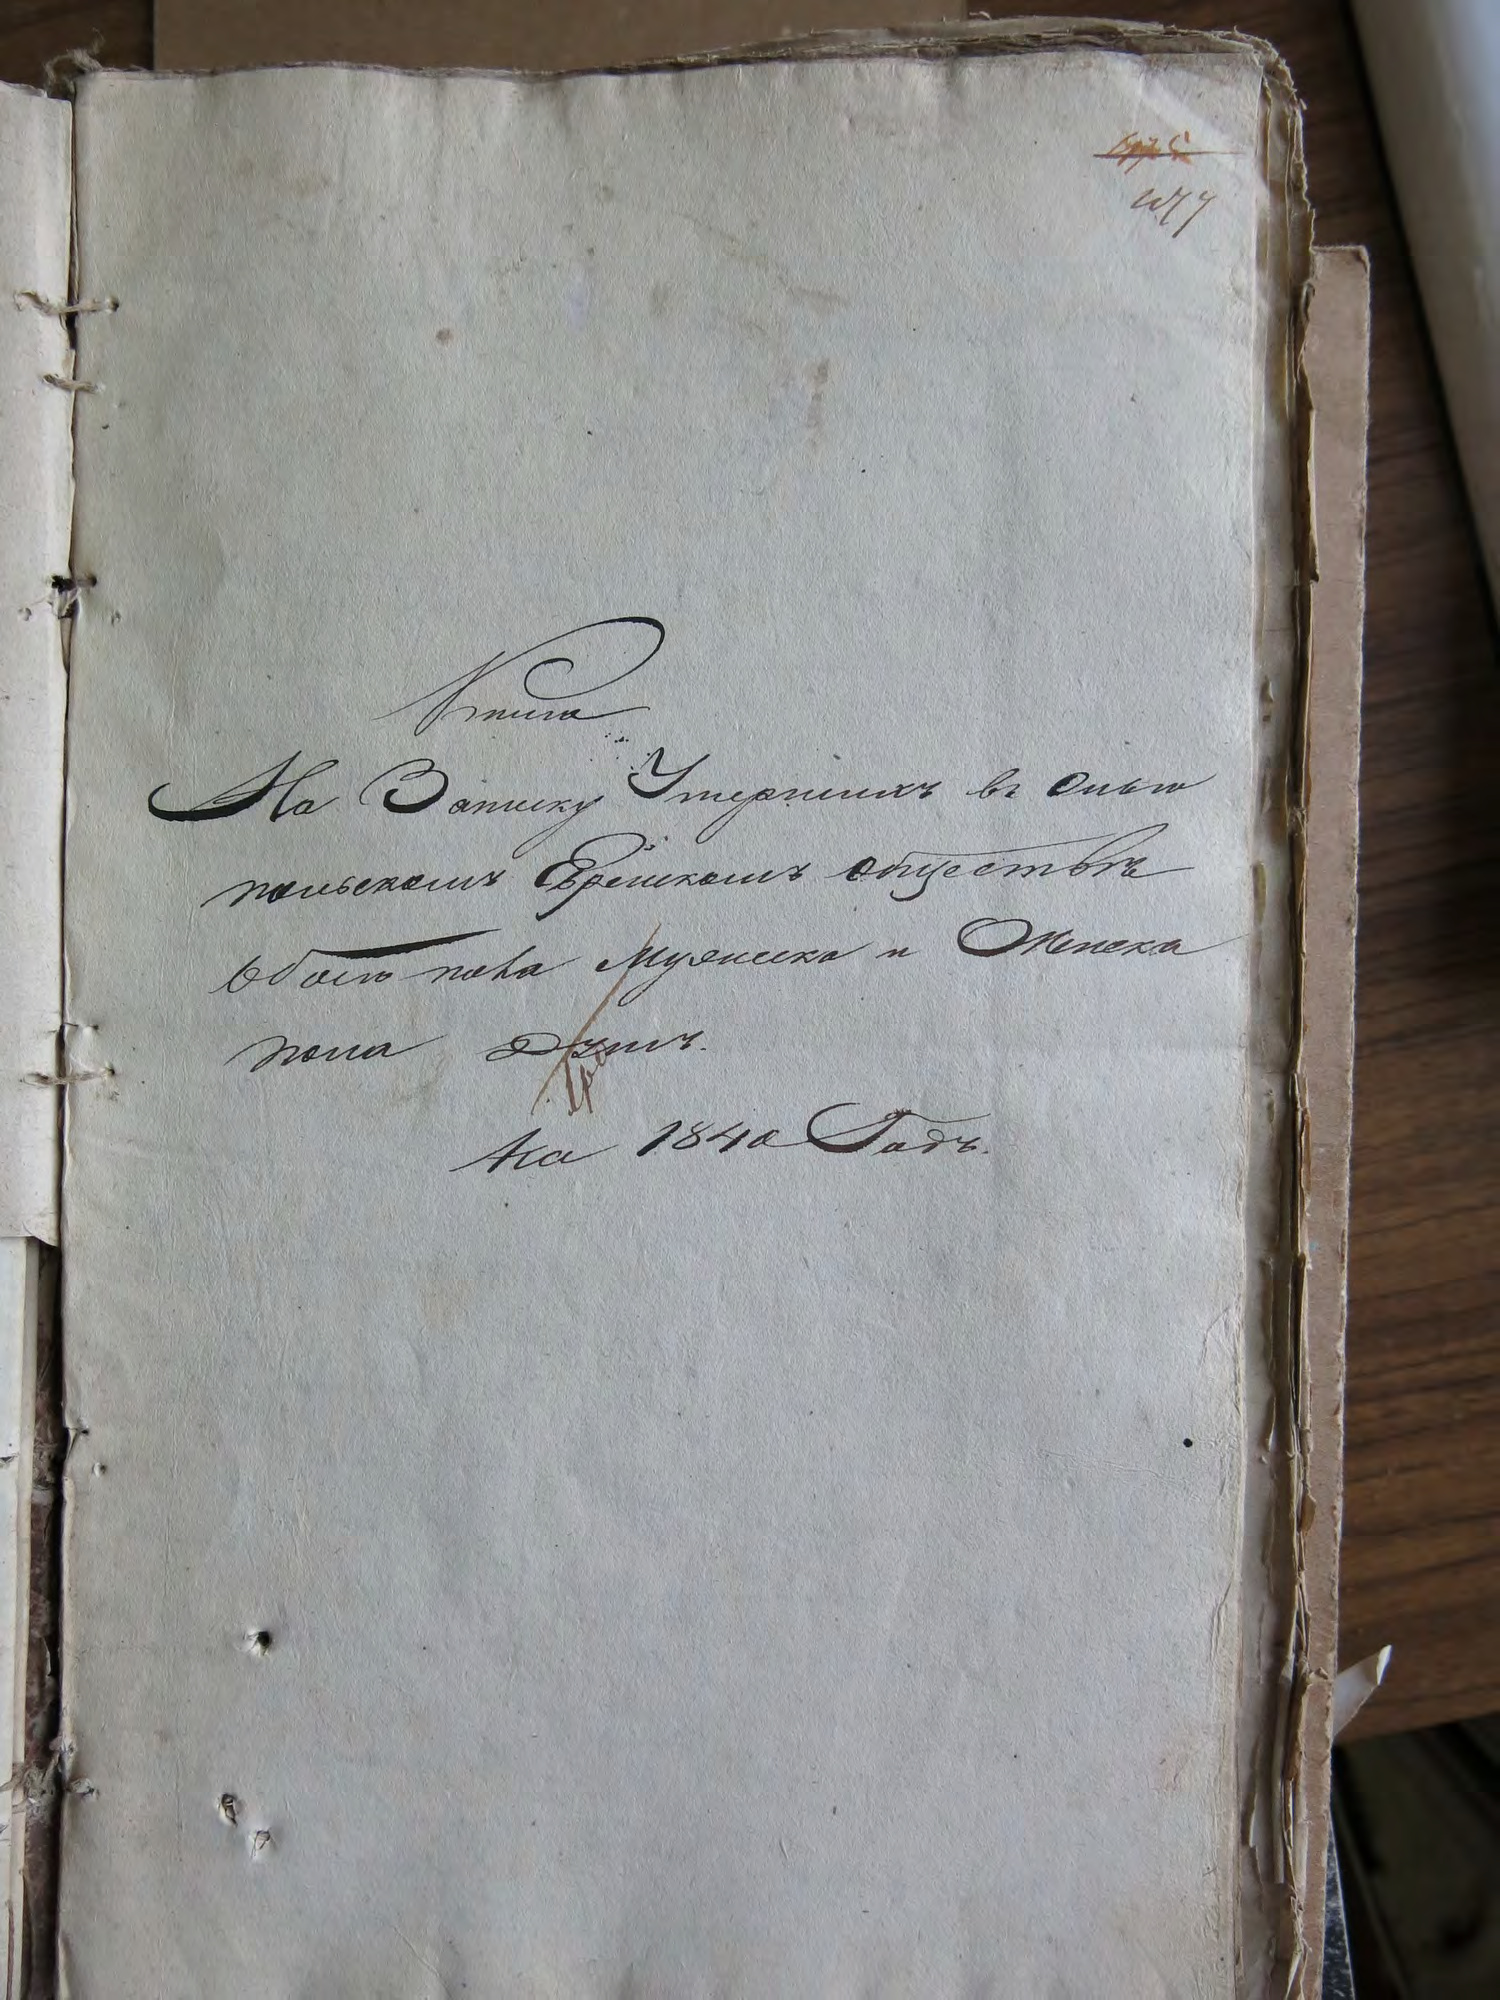 Книга
На Записку Умершихъ въ Ольго
польскомъ Еврейскомъ обществѣ
обоего пола Мужеска и Женска
пола Душъ.
на 1840 Годъ.